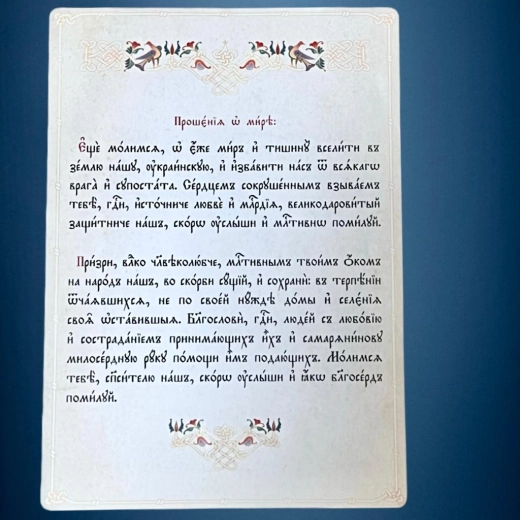 Прошє́нїѧ ѡ҆ ми́рѣ:
Є҆щѐ мо́лимсѧ, ѡ҆ є҆́же ми́ръ и҆ тишинꙋ̀ всели́ти въ
зе́млю на́шꙋ, ᲂу҆краи́нскꙋю, и҆ и҆зба́вити на́съ ѿ всѧ́кагѡ
врага̀ и҆ сꙋпоста́та. Се́рдцемъ сокрꙋше́ннымъ взыва́емъ
тебѣ̀, гдⷭ҇и, и҆сто́чниче любвѐ и҆ млⷭ҇рдїѧ, великодарови́тый
защи́тниче на́шъ, ско́рѡ ᲂу҆слы́ши и҆ млⷭ҇тивнѡ поми́лꙋй.
При́зри, вⷣко чл҃вѣколю́бче, млⷭ҇тивнымъ твои́мъ ѻ҆́комъ
на наро́дъ на́шъ, во ско́рби сꙋ́щїй, и҆ сохранѝ: въ терпѣ́нїи
ѿча́ѧвшихсѧ, не по свое́й нꙋ́ждѣ до́мы и҆ селє́нїѧ
своѧ̑ ѡ҆ста́вившыѧ. Бл҃гословѝ, гдⷭ҇и, люде́й съ любо́вїю
и҆ сострада́нїемъ принима́ющихъ и҆̀хъ и҆ самарѧни́новꙋ
милосе́рднꙋю рꙋ́кꙋ по́мощи и҆̀мъ подаю́щихъ. Мо́лимсѧ
тебѣ̀, сп҃си́телю на́шъ, ско́рѡ ᲂу҆слы́ши и҆ ꙗ҆́кѡ бл҃госе́рдъ
поми́лꙋй.